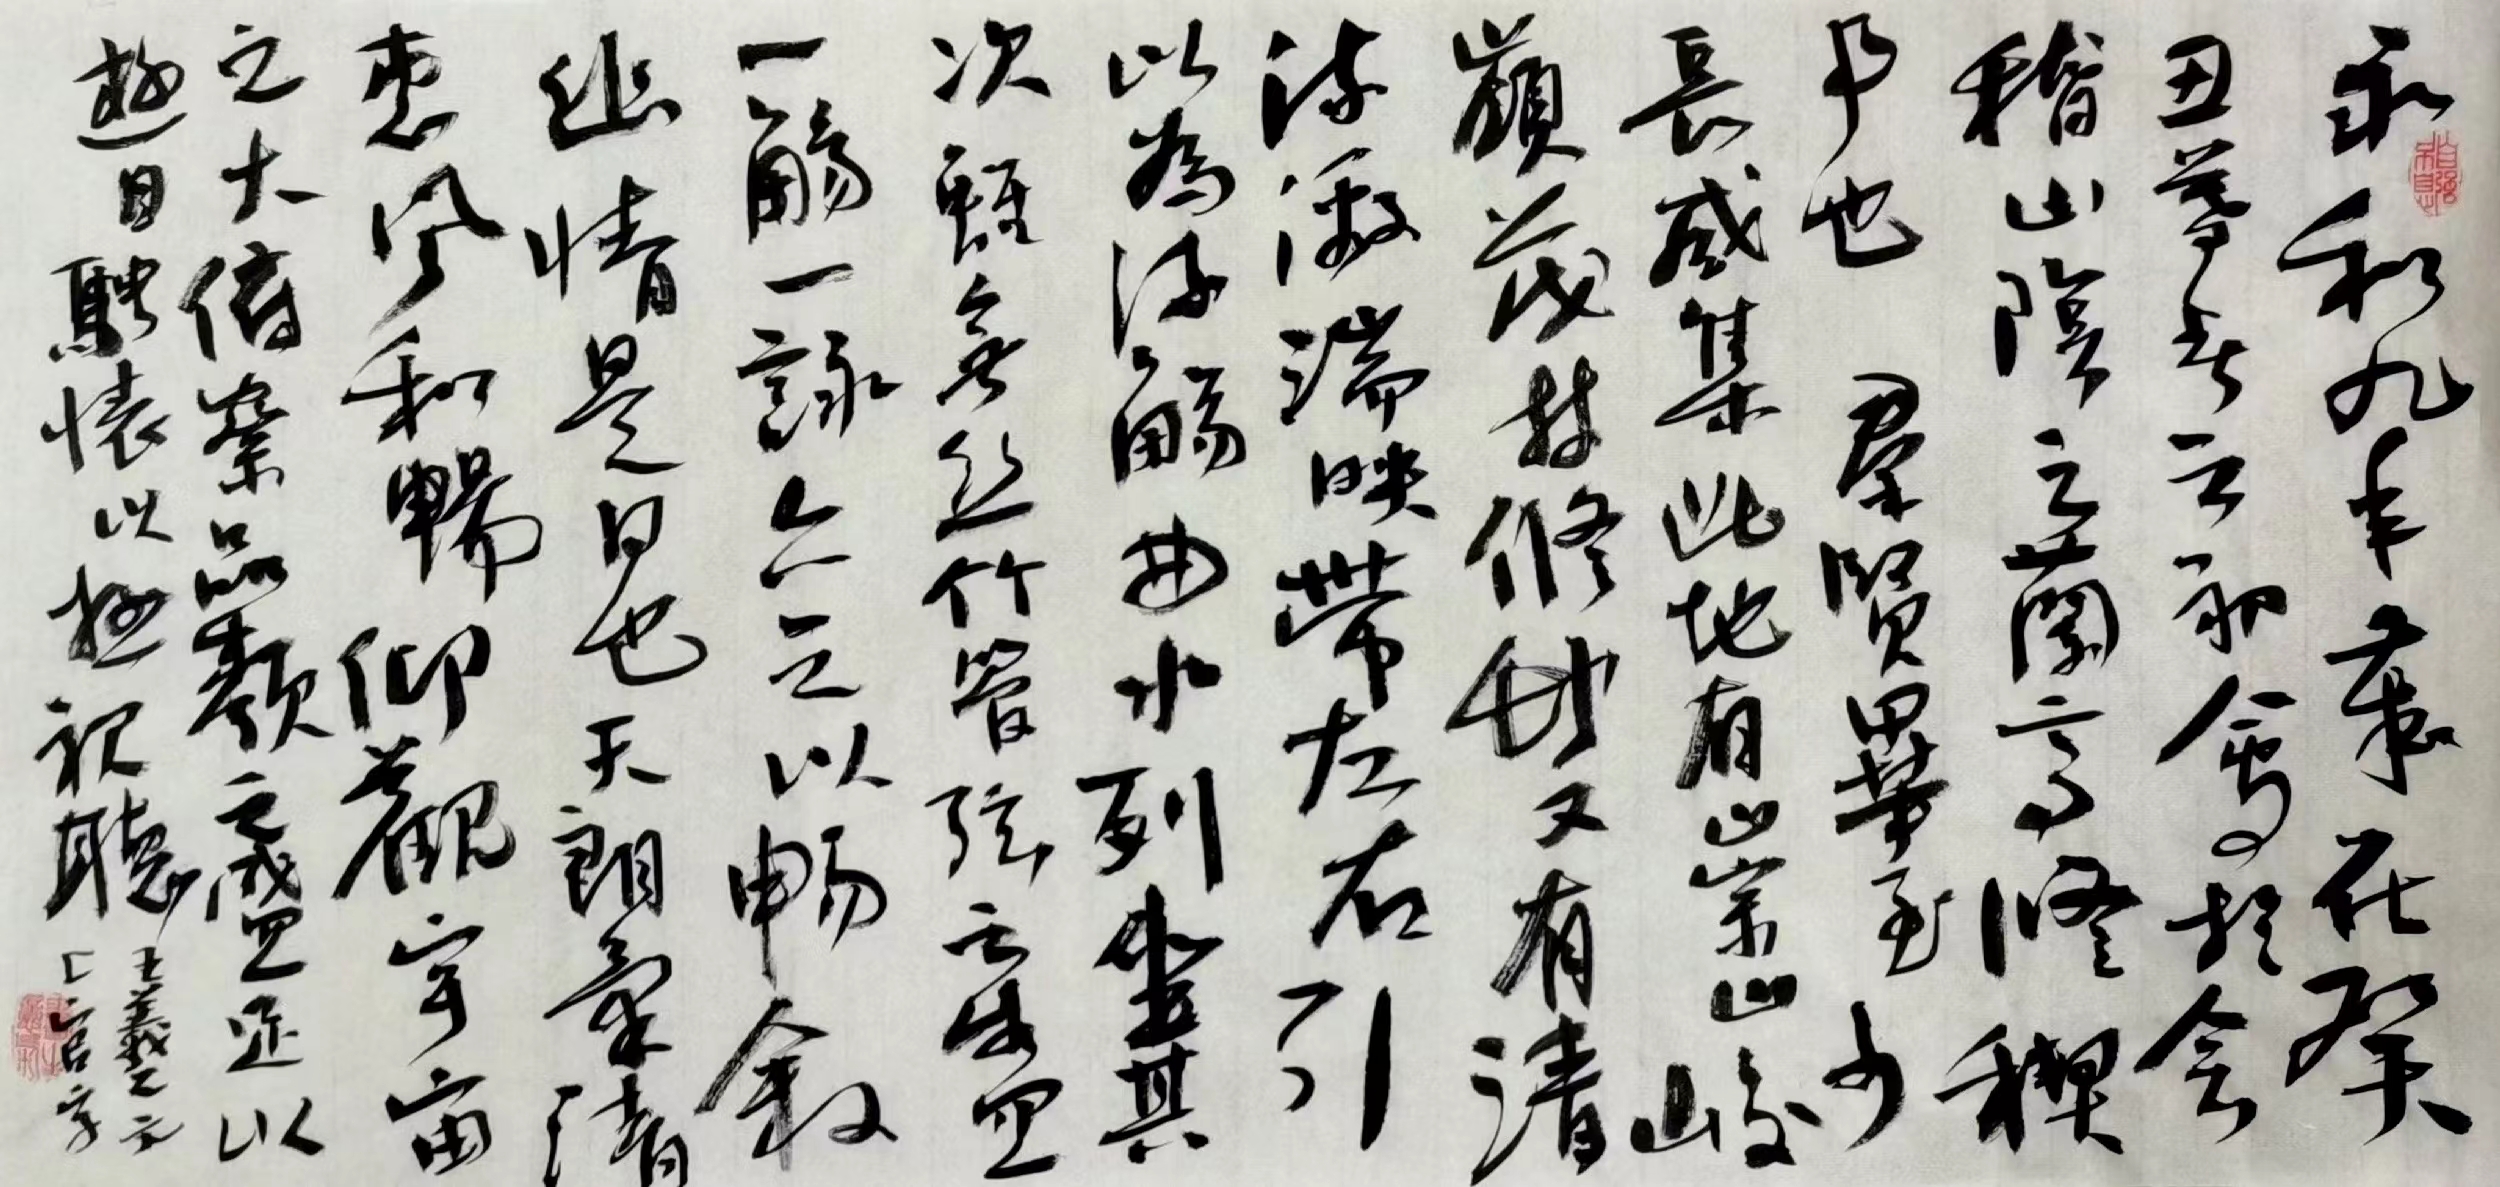 永和九年歲在癸
丑暮春之初會於會
稽山陰之蘭亭修禊
事也群賢畢至少
長咸集此地有崇山峻
嶺茂林修竹又有清
流激湍映帶左右引
以為流觴曲水列坐其
次雖無絲竹管弦之盛
一觴一詠亦足以暢敘
幽情是日也天朗氣清
惠風和暢仰觀宇宙
之大俯察品類之盛所以
遊目騁懷足以極視聽
王羲之